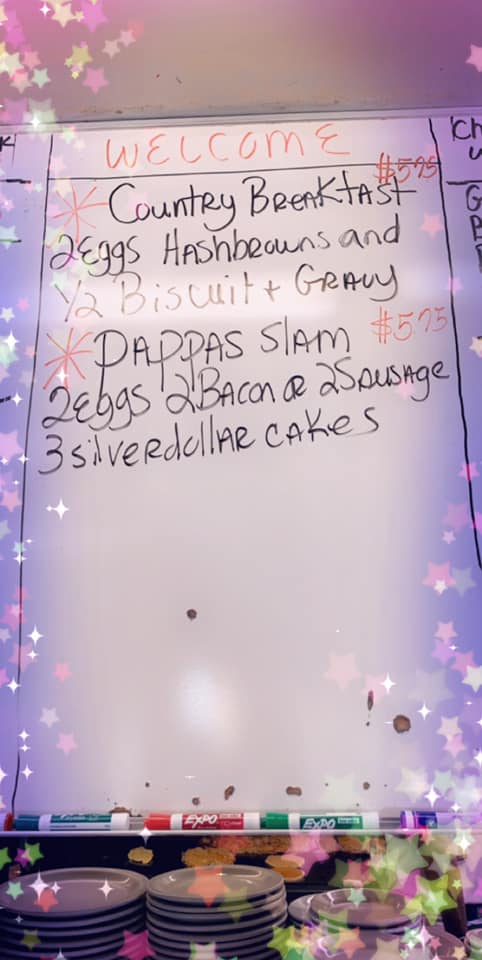 WELCOME
$5.75
* Country BreaKfast
2 eggs Hashbrowns and
1/2 Biscuit + GRAVY
* PAPPAS Slam $5.75
2 eggs 2 BAcon OR 2 SAUSAge
3 silverdollAR CAKes
EXPO
EXPO